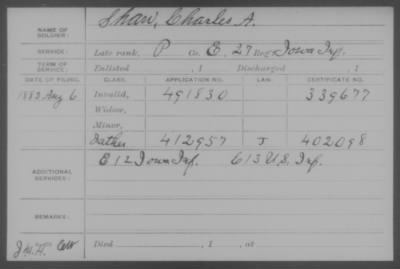 NAME OF SOLDIER: Shaw, Charles A.
SERVICE: Late rank, P Co. E, 27 Reg't Iowa Inf.
TERM OF SERVICE: Enlisted , 1 Discharged , 1
DATE OF FILING. CLASS. APPLICATION NO. LAW. CERTIFICATE NO.
1883 Aug 6 Invalid, 491830 339677
Widow,
Minor,
Father 412957 J 402098
ADDITIONAL SERVICES: E 12 Iowa Inf. 613 U.S. Inf.
REMARKS:
Died , 1 , at